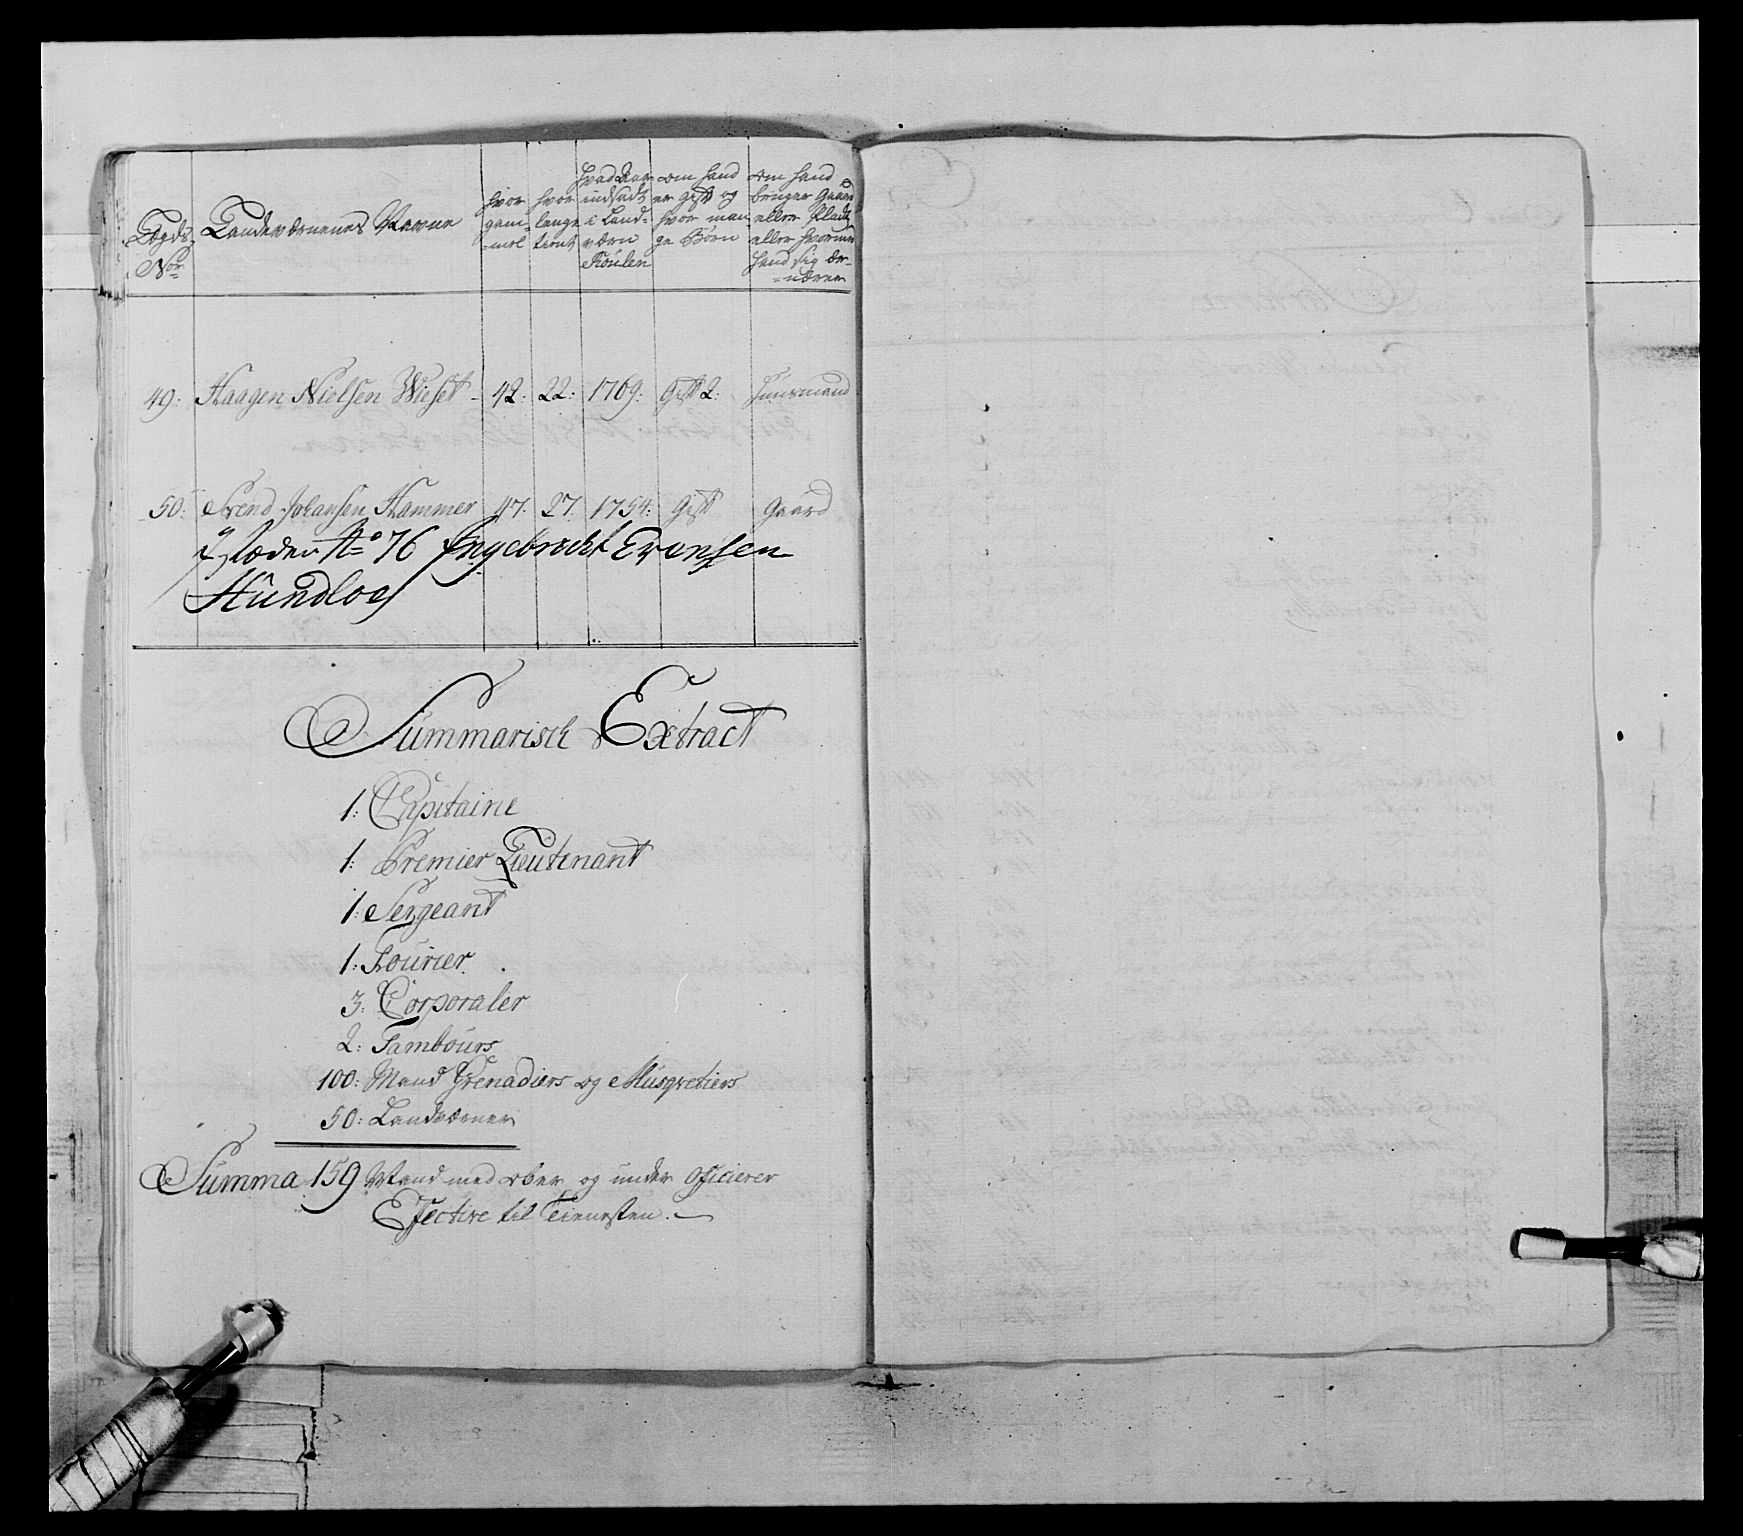 Lægds Nor
Landeværnenes Navne
hvor gam=mel
hvor længe tient
hvad Aar indsadt i Land=værn Roulen
om hand er gift og hvor man ge Børn
om hand bruger Gaard eller Plads eller hvormed hand sig er=nærer
49: Haagen Nielsen Wiset - 42: 22: 1769: Gift 2: Huusmand
50: Svend Johansen Hammer 47: 27: 1754: Gift Gaard
J stæden No 76 Jngebrecht Evensen
Hundloes
Summarisch Extract
1: Capitaine
1: Premier Lieutenant
1: Sergeant
1: Fourier
3: Corporaler
2: Tambours
100: Mand Grenadiers og Musqvetiers
50: Landværner
Summa 159 Mand med Ober og under Officierer
Effective til Tienesten.